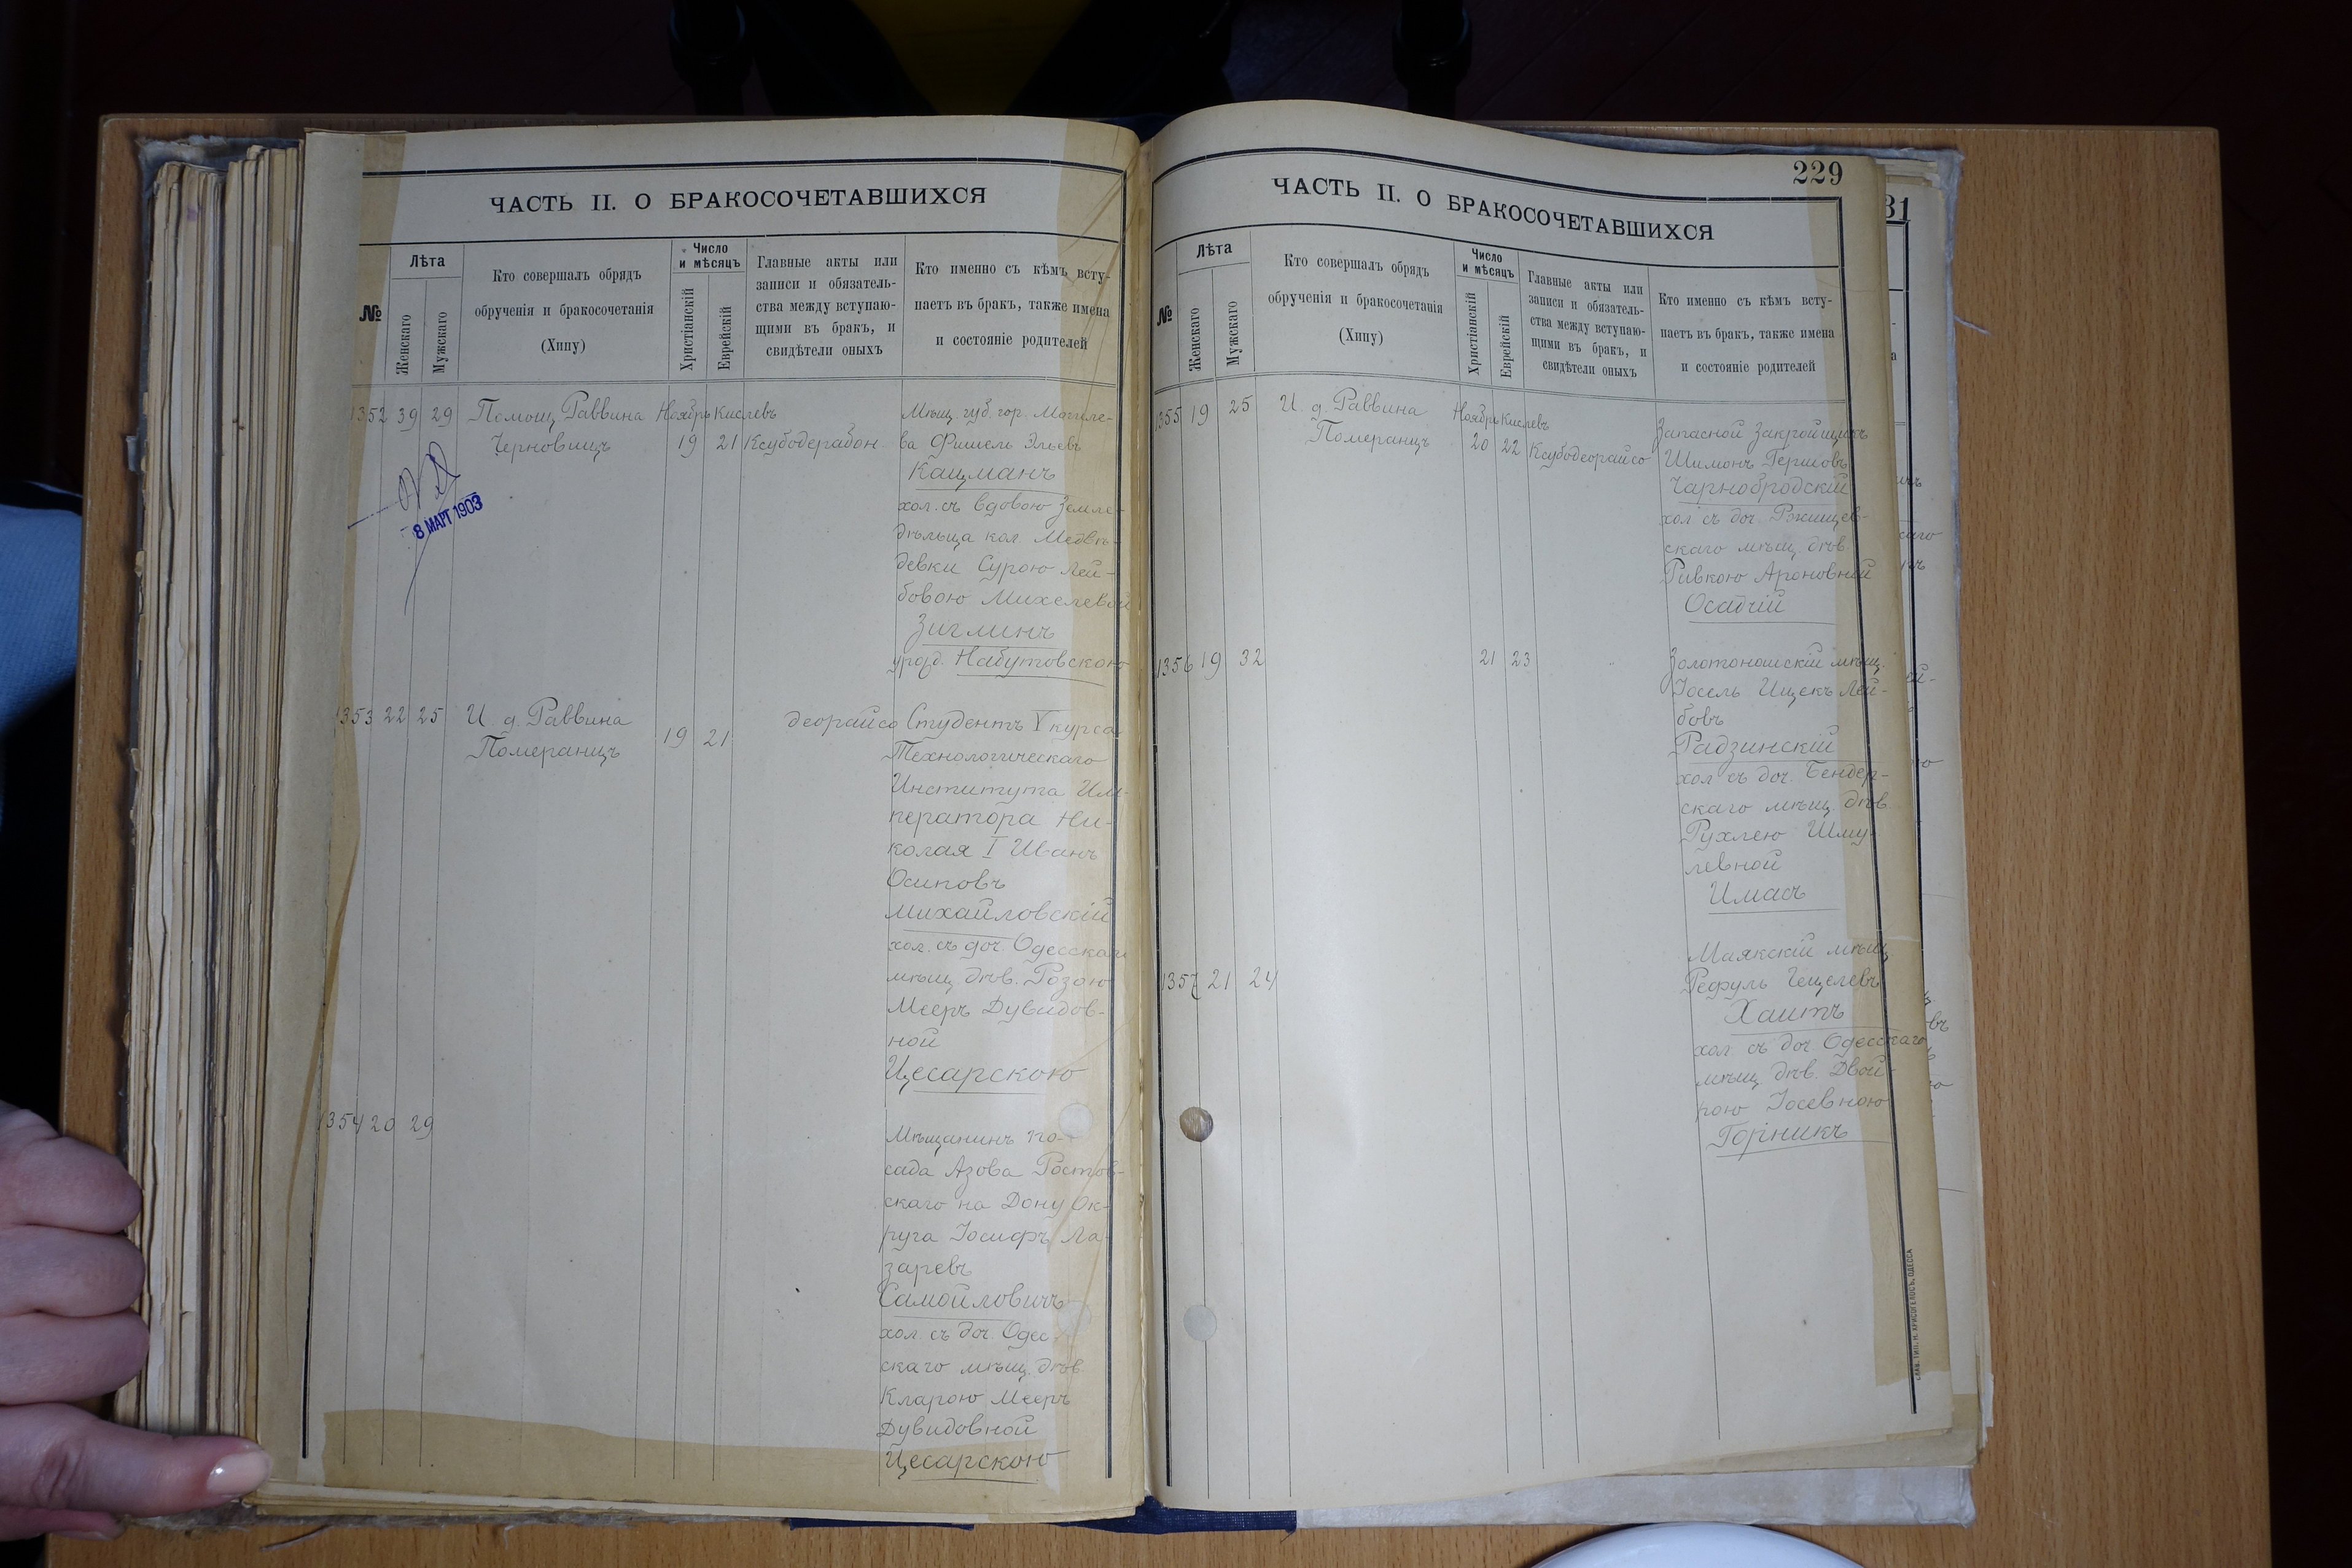 ЧАСТЬ II. О БРАКОСОЧЕТАВШИХСЯ
№
Лѣта
Женскаго
Мужскаго
Кто совершалъ обрядъ
обрученія и бракосочетанія
(Хипу)
Число
и мѣсяцъ
Христіанскій
Еврейскій
Главные акты или
записи и обязатель-
ства между вступаю-
щими въ бракъ, и
свидѣтели оныхъ
Кто именно съ кѣмъ всту-
паетъ въ бракъ, также имена
и состояніе родителей
1352 39 29 Помощ. Раввина Ноябрь Кислевъ Мѣщ. губ. гор. Могиле-
Черновицъ 19 21 Ксубодерабон ва Фишель Эльевъ
Кацманъ
хол. съ вдовою Земле-
дѣльца кол. Медвѣ-
девки Сурою Лей-
бовою Михелевой
Зиглинъ
урожд. Набутовскою
8 МАРТ 1903
1353 22 25 И. д. Раввина деорайсо Студентъ V курса
Померанцъ 19 21 Технологическаго
Института Им-
ператора Ни-
колая I Иванъ
Осиповъ
Михайловскій
хол. съ доч. Одесскаго
мѣщ. дѣв. Розою
Мееръ Дувидов-
ной
Цесарскою
1354 20 29 Мѣщанинъ по-
сада Азова Ростов-
скаго на Дону Ок-
руга Іосифъ Ла-
заревъ
Самойловичъ
хол. съ доч. Одес-
скаго мѣщ. дѣв.
Кларою Мееръ
Дувидовной
Цесарскою
229
ЧАСТЬ II. О БРАКОСОЧЕТАВШИХСЯ
№
Лѣта
Женскаго
Мужскаго
Кто совершалъ обрядъ
обрученія и бракосочетанія
(Хипу)
Число
и мѣсяцъ
Христіанскій
Еврейскій
Главные акты или
записи и обязатель-
ства между вступаю-
щими въ бракъ, и
свидѣтели оныхъ
Кто именно съ кѣмъ всту-
паетъ въ бракъ, также имена
и состояніе родителей
1355 19 25 И. д. Раввина Ноябрь Кислевъ Запасной Закройщикъ
Померанцъ 20 22 Ксубодеорайсо Шимонъ Гершовъ
Чарнобродскій
хол. съ доч. Ржищев-
скаго мѣщ. дѣв.
Ривкою Ароновной
Осадчій
1356 19 32 21 23 " Золотоношскій мѣщ.
Іосель Ицекъ Лей-
бовъ
Радзинскій
хол. съ доч. Бендер-
скаго мѣщ. дѣв.
Рухлею Шму-
левной
Имасъ
Маякскій мѣщ.
1357 21 24 Рефуль Гецелевъ
Хаитъ
хол. съ доч. Одесскаго
мѣщ. дѣв. Двой-
рою Іосевною
Горникъ
31
СЛАВ. ТИП. Н. ХРИСОГЕЛОСЪ, ОДЕССА